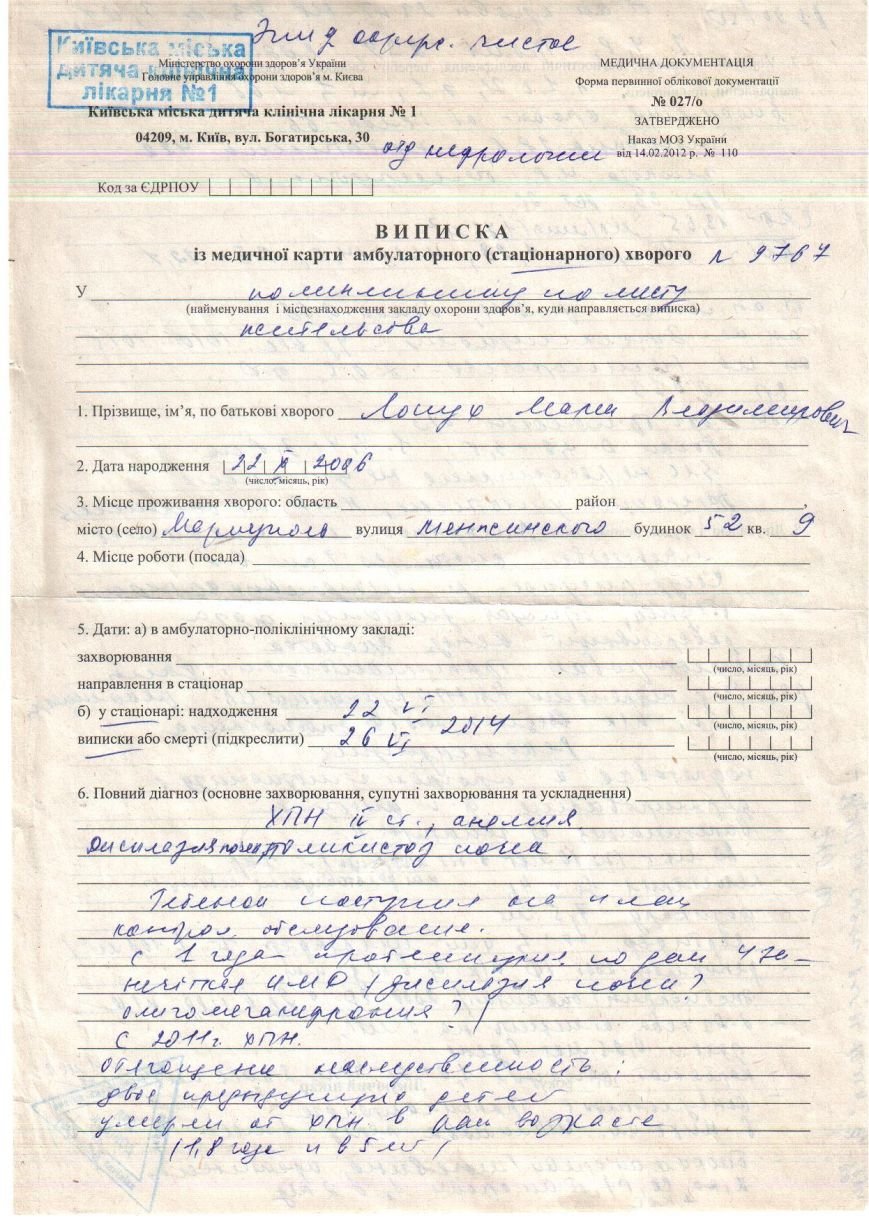 Київська міська
дитяча клінічна
лікарня №1
Міністерство охорони здоров'я України
Головне управління охорони здоров'я м. Києва
Київська міська дитяча клінічна лікарня № 1
04209, м. Київ, вул. Богатирська, 30
МЕДИЧНА ДОКУМЕНТАЦІЯ
Форма первинної облікової документації
№ 027/о
ЗАТВЕРДЖЕНО
Наказ МОЗ України
від 14.02.2012 р. № 110
отд нефрологии
Код за ЄДРПОУ
ВИПИСКА
із медичної карти амбулаторного (стаціонарного) хворого N 9767
У поликлинику по месту
(найменування і місцезнаходження закладу охорони здоров'я, куди направляється виписка)
жительства
1. Прізвище, ім'я, по батькові хворого Марк Владимирович
2. Дата народження 22 2006
(число, місяць, рік)
3. Місце проживання хворого: область район
місто (село) Мариуполь вулиця Менжинского будинок 52 кв. 9
4. Місце роботи (посада)
5. Дати: а) в амбулаторно-поліклінічному закладі:
захворювання
(число, місяць, рік)
направлення в стаціонар
(число, місяць, рік)
б) у стаціонарі: надходження 22 VI
(число, місяць, рік)
виписки або смерті (підкреслити) 26 VI 2014
(число, місяць, рік)
6. Повний діагноз (основне захворювання, супутні захворювання та ускладнення)
ХПН IV ст., анемия.
Дисплазия почек, поликистоз почек.
Ребенок поступил на план
контрол. обследование.
С 1 года протеинурия, по дан УЗ
нечеткая (дисплазия почек?
олигомеганефрония?)
С 2011г. ХПН.
Отягощена наследственность:
двое предыдущих детей
умерли от ХПН в ран возрасте
(1,8 года и в 5 лет)